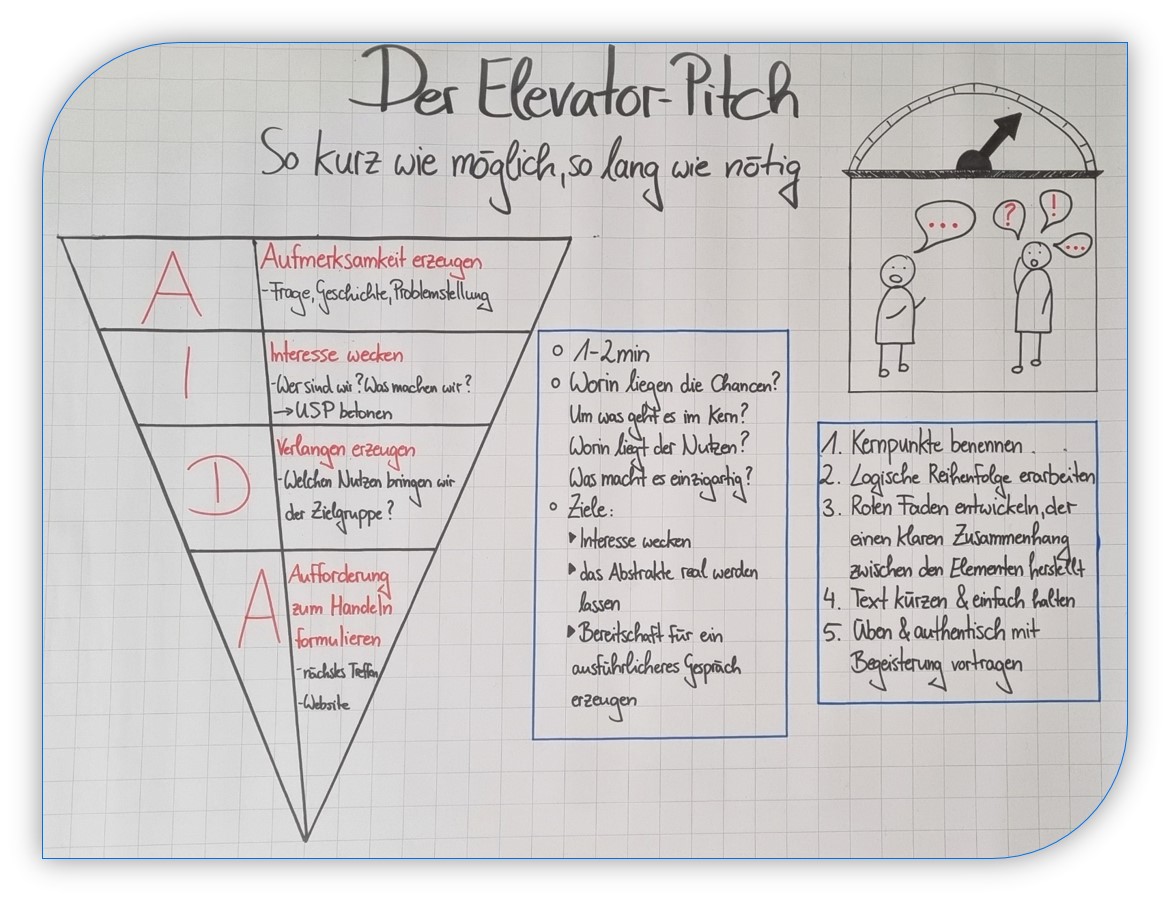 Der Elevator-Pitch
So kurz wie möglich, so lang wie nötig
A
Aufmerksamkeit erzeugen
-Frage, Geschichte, Problemstellung
I
Interesse wecken
-Wer sind wir? Was machen wir?
→ USP betonen
D
Verlangen erzeugen
-Welchen Nutzen bringen wir
der Zielgruppe?
A
Aufforderung
zum Handeln
formulieren
-nächstes Treffen
-Website
o 1-2min
o Worin liegen die Chancen?
Um was geht es im Kern?
Worin liegt der Nutzen?
Was macht es einzigartig?
o Ziele:
▸ Interesse wecken
▸ das Abstrakte real werden
lassen
▸ Bereitschaft für ein
ausführlicheres Gespräch
erzeugen
...
?
!
...
1. Kernpunkte benennen
2. Logische Reihenfolge erarbeiten
3. Roten Faden entwickeln, der
einen klaren Zusammenhang
zwischen den Elementen herstellt
4. Text kürzen & einfach halten
5. Üben & authentisch mit
Begeisterung vortragen